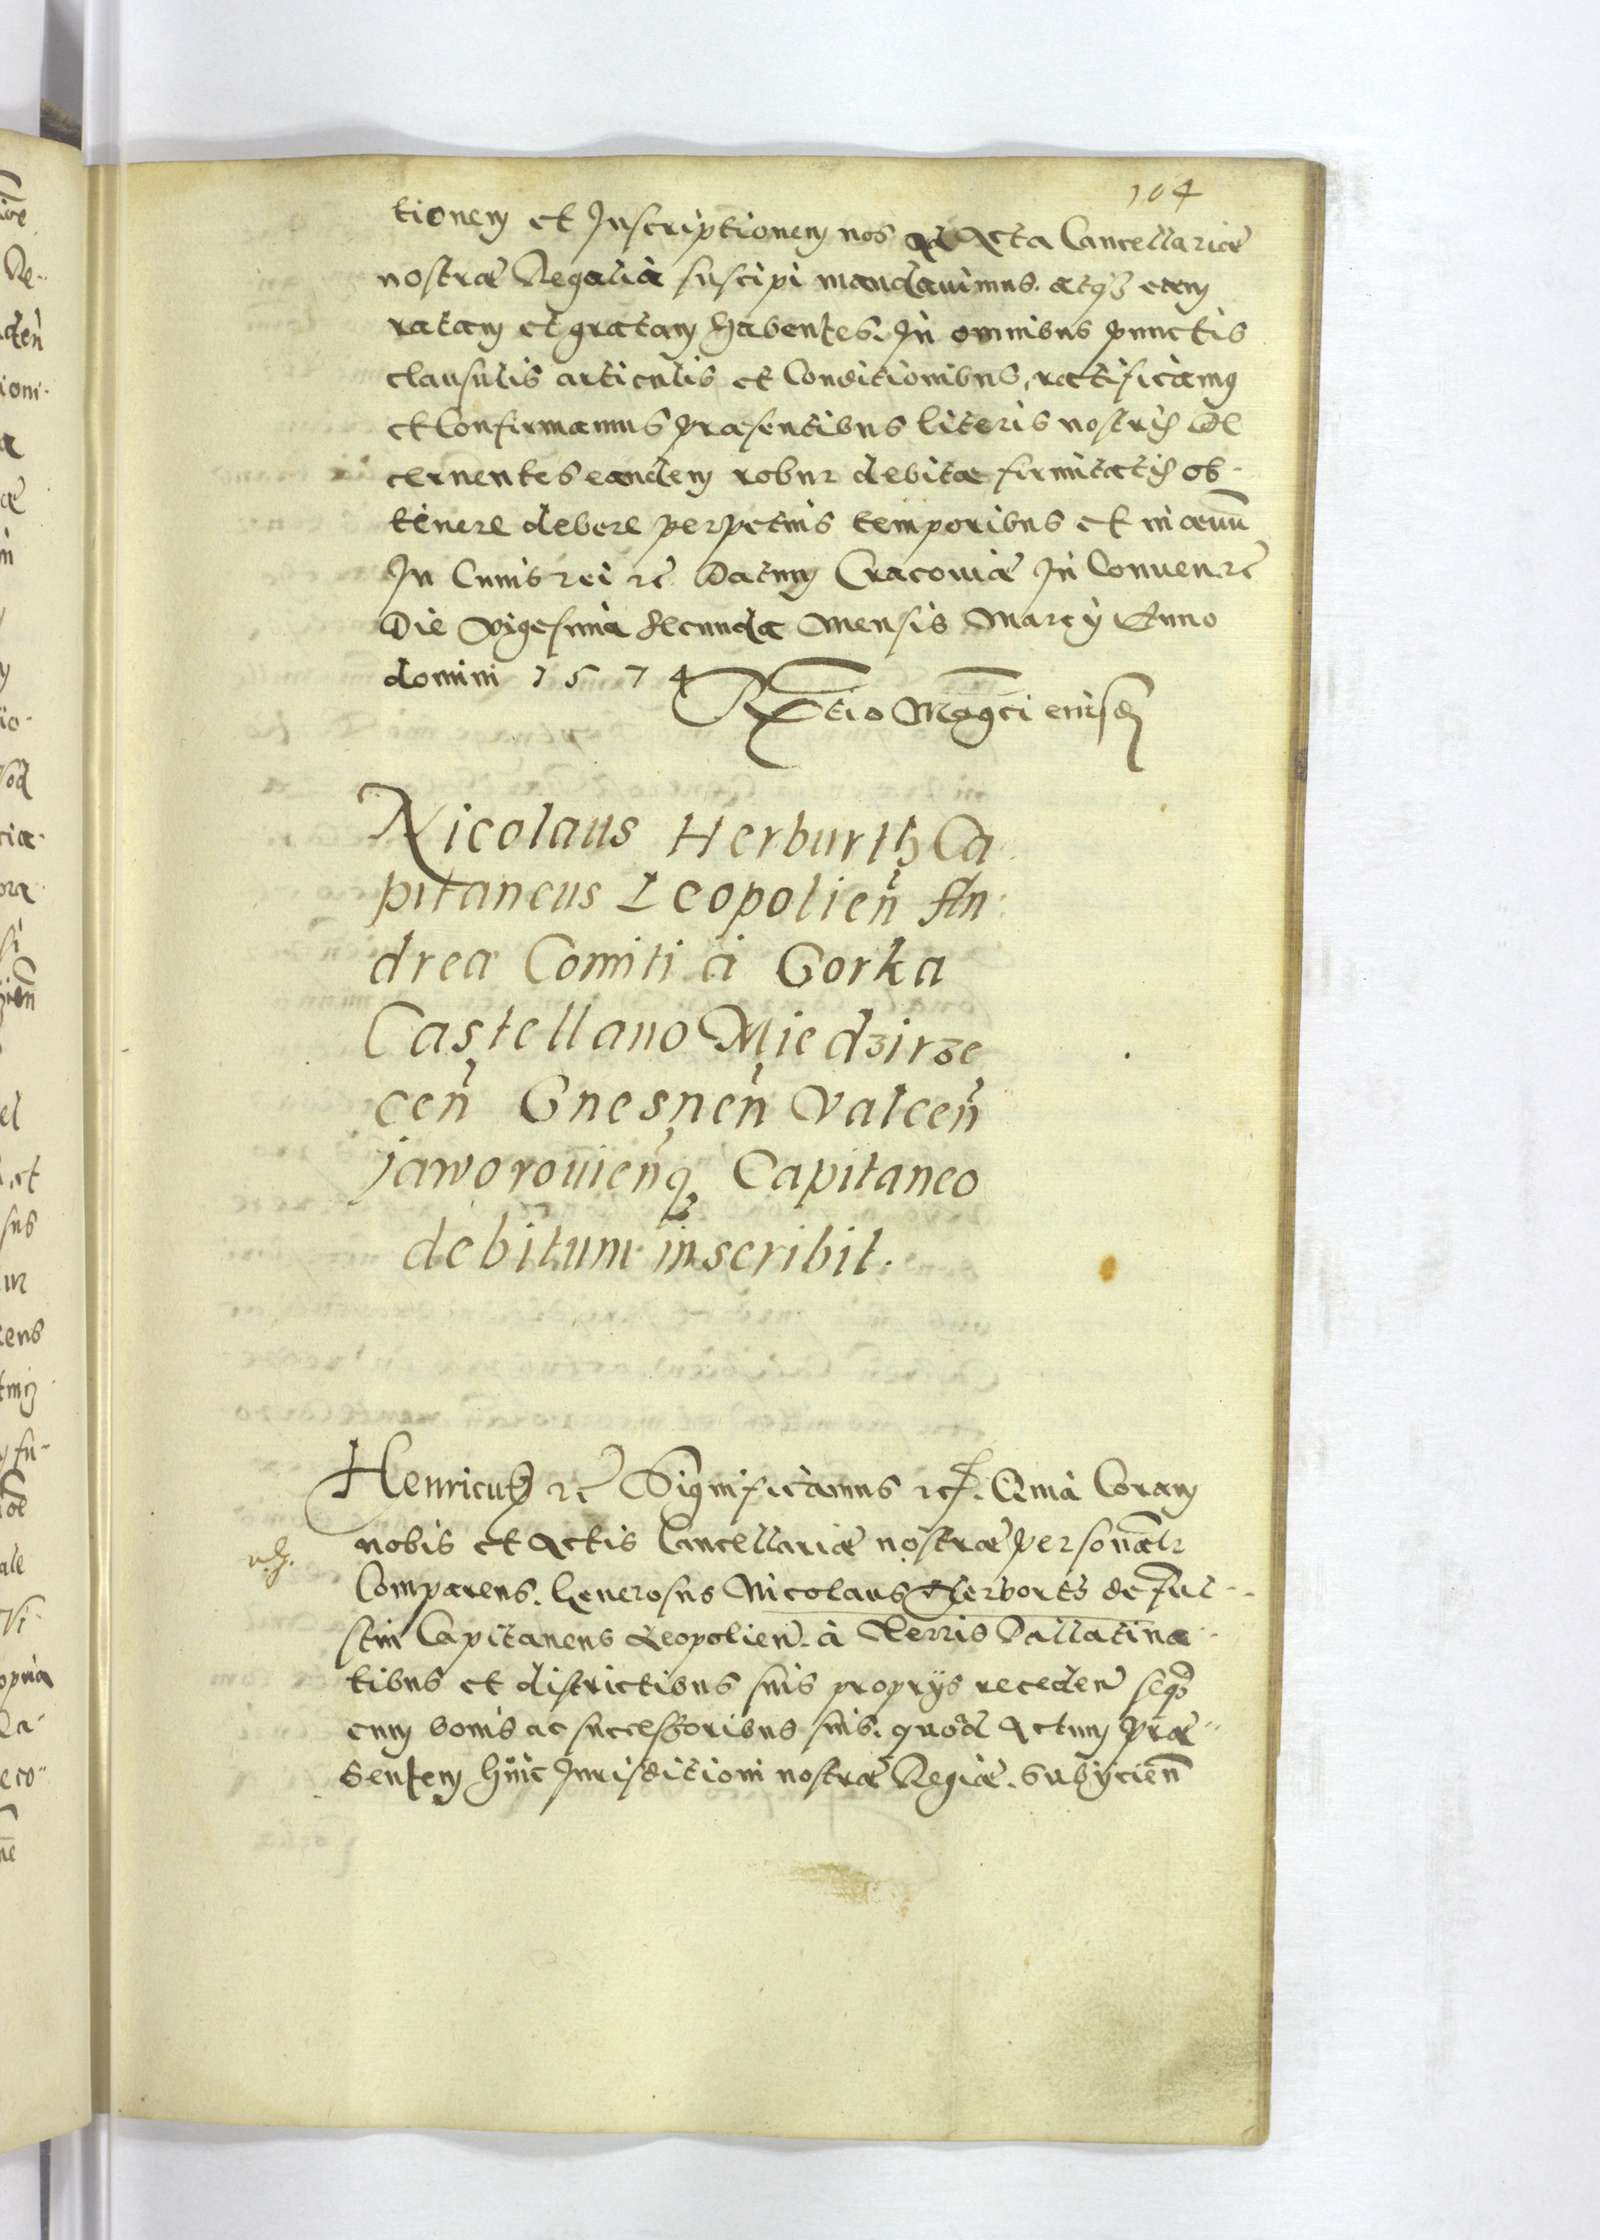 104
tionem et Inscriptionem nos ad Acta Cancellariæ
nostræ Regalia suscipi mandauimus. atqȝ eam
ratam et gratam habentes. In omnibus punctis
clausulis articulis et Conditionibus, ratificamus
et Confirmamus præsentibus literis nostris De
cernentes eandem robur debitæ firmitatis ob-
tinere debere perpetuis temporibus et in æuũ
In Cuius rei etc Datum Cracouiæ In Conuen. etc
Die Vigesima secunda Mensis Marcÿ Anno
domini 1574
Rtio Mag̃ci eiusd
Nicolaus Herburth Ca
pitaneus Leopolieñ An
dreæ Comiti à Gorka
Castellano Miedzirze
ceñ Gnesneñ Valceñ
jaworouieñqȝ Capitaneo
debitum inscribit.
Henricus etc Significamus etc. Quia Coram
nobis et Actis Cancellariæ nostræ personalr
Comparens. Generosus Nicolaus Herborth de Ful-
stin Capitaneus Leopolien. à Terris Pallatina-
tibus et districtibus suis proprÿs receden seqȝ
cum bonis ac successoribus suis. quoad Actum præ-
sentem huic Jurisditioni nostræ Regiæ. Subÿcien